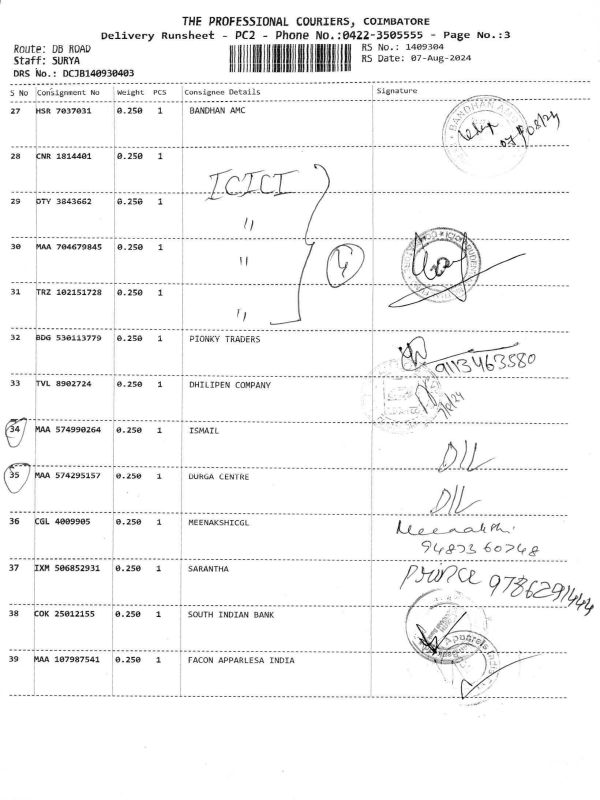 THE PROFESSIONAL COURIERS, COIMBATORE
Delivery Runsheet - PC2 - Phone No.:0422-3505555 - Page No.:3
Route: DB ROAD
RS No.: 1409304
Staff: SURYA
RS Date: 07-Aug-2024
DRS No.: DCJB140930403
S No Consignment No Weight PCS Consignee Details Signature
27 HSR 7037031 0.250 1 BANDHAN AMC
BANDHAN AM
07/08/24
28 CNR 1814401 0.250 1
ICICI
29 OTY 3843662 0.250 1
"
30 MAA 704679845 0.250 1
" 4
31 TRZ 102151728 0.250 1
"
32 BDG 530113779 0.250 1 PIONKY TRADERS
9113463580
33 TVL 8902724 0.250 1 DHILIPEN COMPANY
34 MAA 574990264 0.250 1 ISMAIL
DIL
35 MAA 574295157 0.250 1 DURGA CENTRE
DIL
36 CGL 4009905 0.250 1 MEENAKSHICGL Meenakshi
9487360748
37 IXM 506852931 0.250 1 SARANTHA Prince 9786291444
38 COK 25012155 0.250 1 SOUTH INDIAN BANK
Apparels India
39 MAA 107987541 0.250 1 FACON APPARLESA INDIA